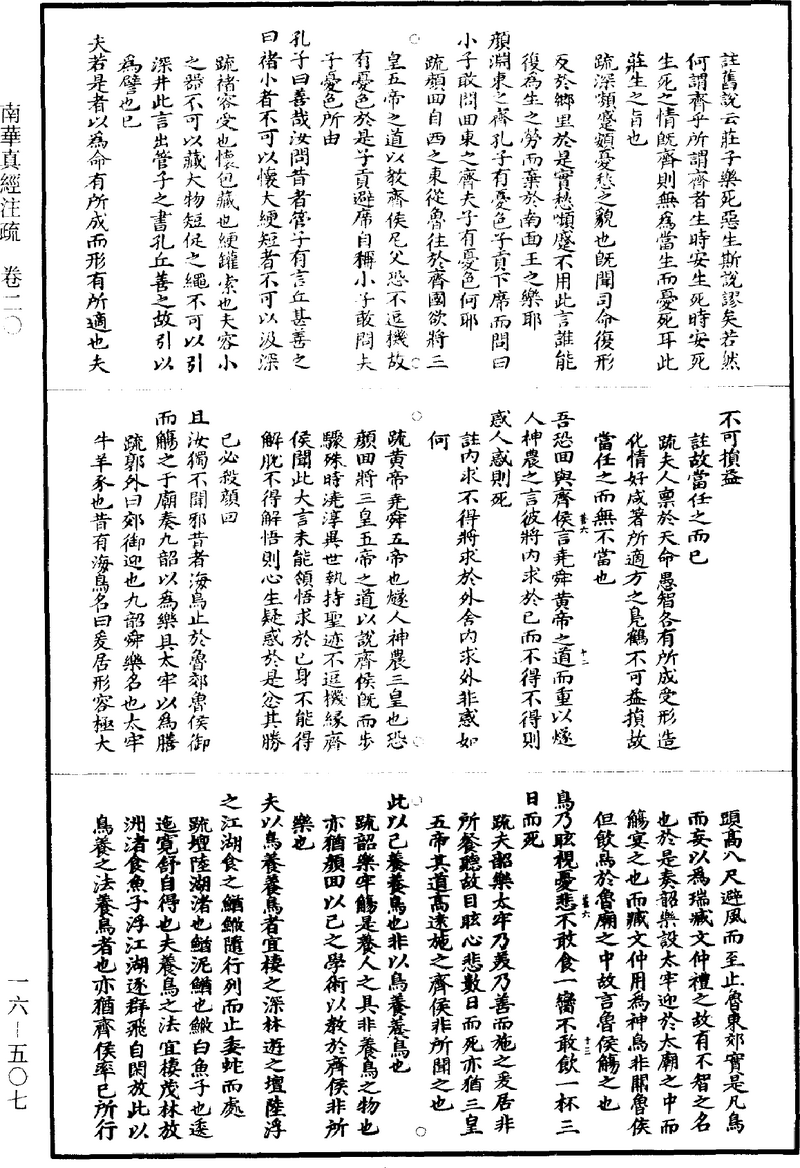 南華真經注疏　卷二〇
一六—五〇七
註舊說云莊子樂死惡生斯說謬矣若然
何謂齊乎所謂齊者生時安生死時安死
生死之情旣齊則無爲當生而憂死耳此
莊生之旨也
疏深矉蹙頞憂愁之貌也旣聞司命復形
反於鄉里於是實愁矉蹙不用此言誰能
復爲生之勞而棄於南面王之樂耶
顔淵東之齊孔子有憂色子貢下席而問曰
小子敢問回東之齊夫子有憂色何耶
疏顔回自西之東從魯往於齊國欲將三
皇五帝之道以教齊侯尼父恐不逗機故
有憂色於是子貢避席自稱小子敢問夫
子憂色所由
孔子曰善哉汝問昔者管子有言丘甚善之
曰褚小者不可以懷大綆短者不可以汲深
疏褚容受也懷包藏也綆罐索也夫容小
之器不可以藏大物短促之繩不可以引
深井此言出管子之書孔丘善之故引以
爲譬也已
夫若是者以爲命有所成而形有所適也夫
不可損益
註故當任之而已
疏夫人禀於天命愚智各有所成受形造
化情好咸著所適方之鳧鶴不可益損故
當任之而無不當也
吾恐回與齊侯言堯舜黄帝之道而重以燧
人神農之言彼將內求於己而不得不得則
惑人惑則死
註內求不得將求於外舍內求外非惑如
何
疏黄帝堯舜五帝也燧人神農三皇也恐
顔回將三皇五帝之道以說齊侯旣而步
驟殊時澆淳異世執持聖迹不逗機緣齊
侯聞此大言未能領悟求於己身不能得
解脫不得解悟則心生疑惑於是忿其勝
己必殺顔回
且汝獨不聞邪昔者海鳥止於魯郊魯侯御
而觴之于廟奏九韶以爲樂具太牢以爲膳
疏郭外曰郊御迎也九韶舜樂名也太牢
牛羊豕也昔有海鳥名曰爰居形容極大
頭高八尺避風而至止魯東郊實是凡鳥
而妄以爲瑞臧文仲禮之故有不智之名
也於是奏韶樂設太牢迎於太廟之中而
觴宴之也而臧文仲用爲神鳥非關魯侯
但飲鳥於魯廟之中故言魯侯觴之也
鳥乃眩視憂悲不敢食一臠不敢飲一杯三
日而死
疏夫韶樂太牢乃美乃善而施之爰居非
所餐聽故目眩心悲數日而死亦猶三皇
五帝其道高遠施之齊侯非所聞之也
此以己養養鳥也非以鳥養養鳥也
疏韶樂牢觴是養人之具非養鳥之物也
亦猶顔回以己之學術以教於齊侯非所
樂也
夫以鳥養養鳥者宜棲之深林遊之壇陸浮
之江湖食之鰌鰷隨行列而止委蛇而處
疏壇陸湖渚也鰌泥鰌也鰷白魚子也逶
迤寬舒自得也夫養鳥之法宜棲茂林放
洲渚食魚子浮江湖逐群飛自閑放此以
鳥養之法養鳥者也亦猶齊侯率己所行